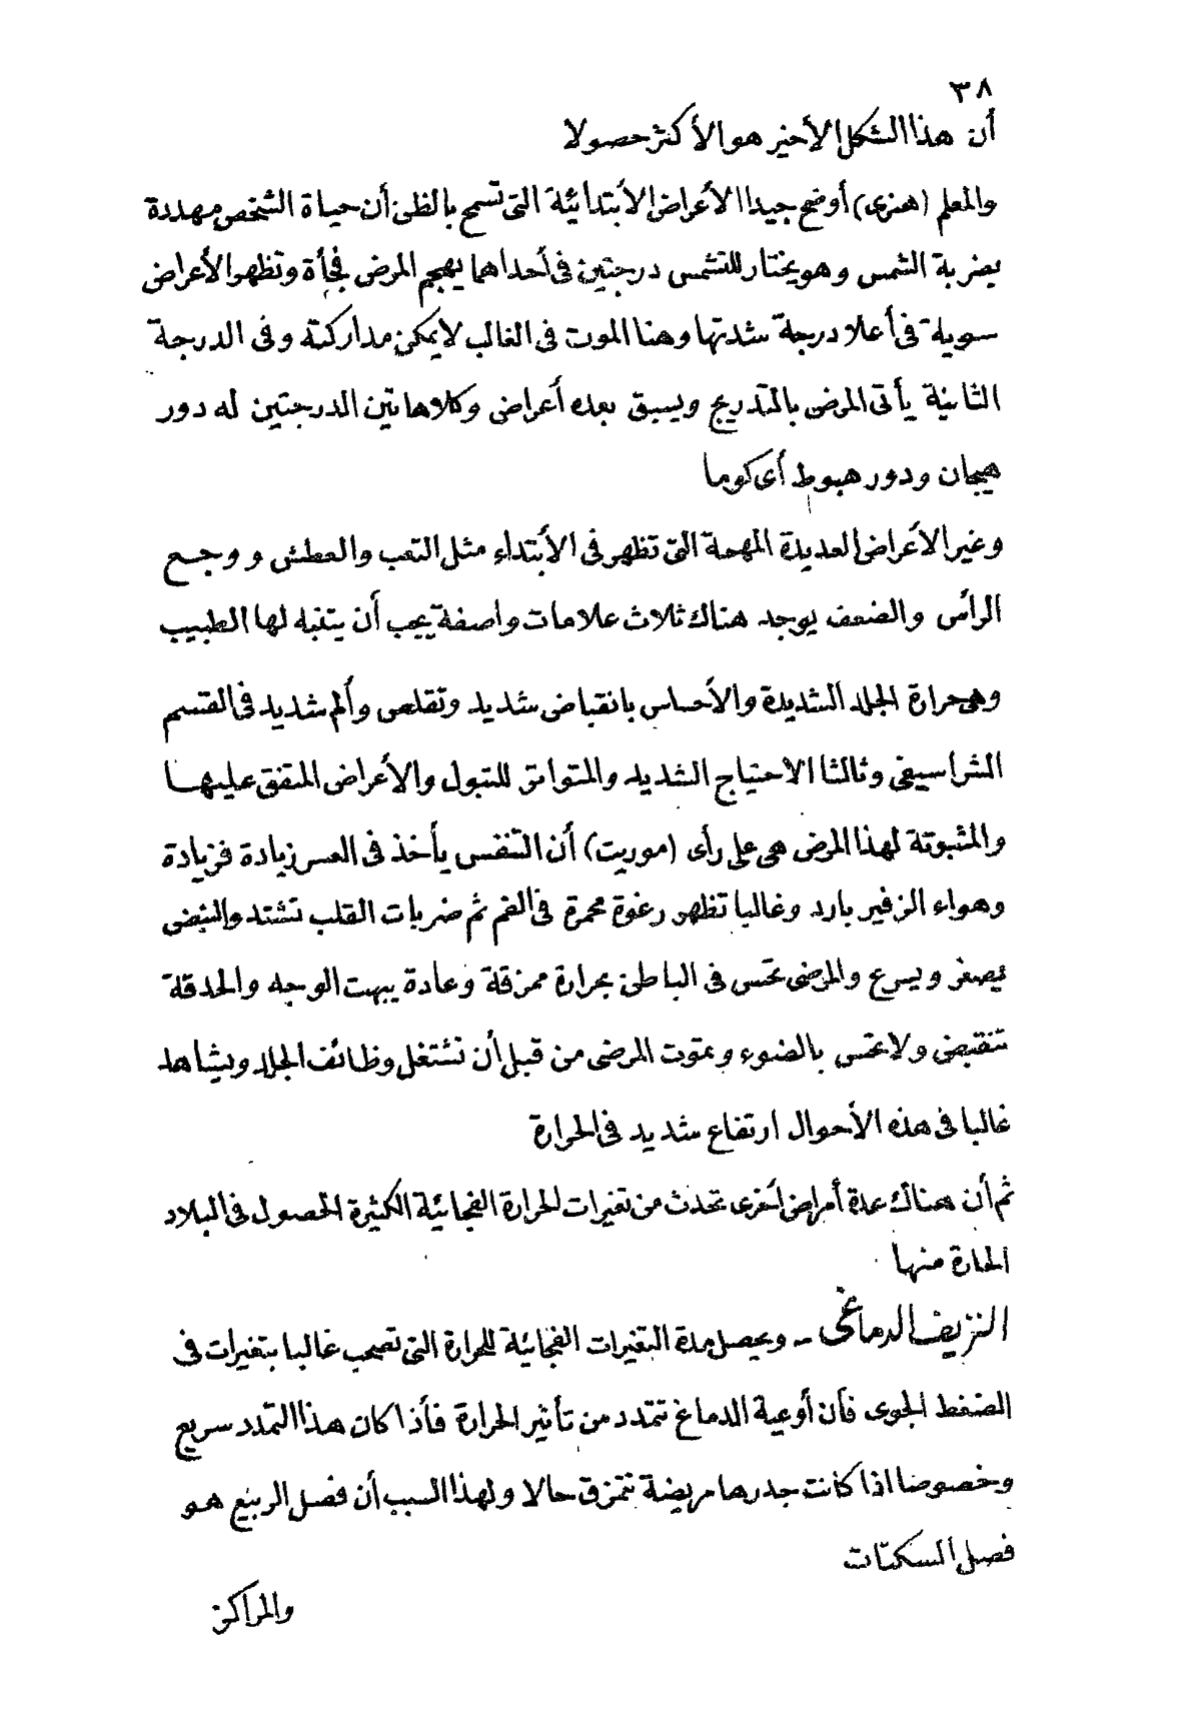 ٣٨
أن هذا الشكل الأخير هو الأكثر حصولا
والمعلم (هنرى) أوضح جيدا الأعراض الأبتدائية التى تسمح بالظن أن حياة الشخص مهددة
بضربة الشمس وهو يختار للتشمس درجتين فى أحداهما يهجم المرض فجأة وتظهر الأعراض
سوية فى أعلا درجة شدتها وهنا الموت فى الغالب لا يمكن مداركته وفى الدرجة
الثانية يأتى المرض بالتدريج ويسبق بعده أعراض وكلا هاتين الدرجتين له دور
هيجان ودور هبوط أى كوما
وغير الأعراض العديدة المهمة التى تظهر فى الأبتداء مثل التعب والعطش و وجع
الرأس والضعف يوجد هناك ثلاث علامات واصفة يجب أن يتنبه لها الطبيب
وهى حرارة الجلد الشديدة والأحساس بانقباض شديد وتقلص وألم شديد فى القسم
الشراسيفى وثالثا الاحتياج الشديد والمتواتر للتبول والأعراض المتفق عليها
والمثبوتة لهذا المرض هى على رأى (موريت) أن التنفس يأخذ فى العسر زيادة فزيادة
وهواء الزفير بارد وغالبا تظهر رغوة محمرة فى الفم ثم ضربات القلب تشتد والنبض
يصغر ويسرع والمرضى تحس فى الباطن بحرارة ممزقة وعادة يبهت الوجه والحدقة
تنقبض ولا تحس بالضوء وتموت المرضى من قبل أن تشتغل وظائف الجلد ويشاهد
غالبا فى هذه الأحوال ارتفاع شديد فى الحرارة
ثم أن هناك عدة أمراض أخرى تحدث من تغيرات الحرارة الفجائية الكثيرة الحصول فى البلاد
الحارة منها
النزيف الدماغى - ويحصل مدة التغيرات الفجائية للحرارة التى تصحب غالبا بتغيرات فى
الضغط الجوى فأن أوعية الدماغ تتمدد من تأثير الحرارة فأذا كان هذا التمدد سريع
وخصوصا اذا كانت جدرها مريضة تتمزق حالا ولهذا السبب أن فصل الربيع هو
فصل السكتات
والمراكز